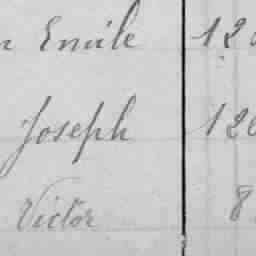 Emile 12
Joseph 120
Victor 8